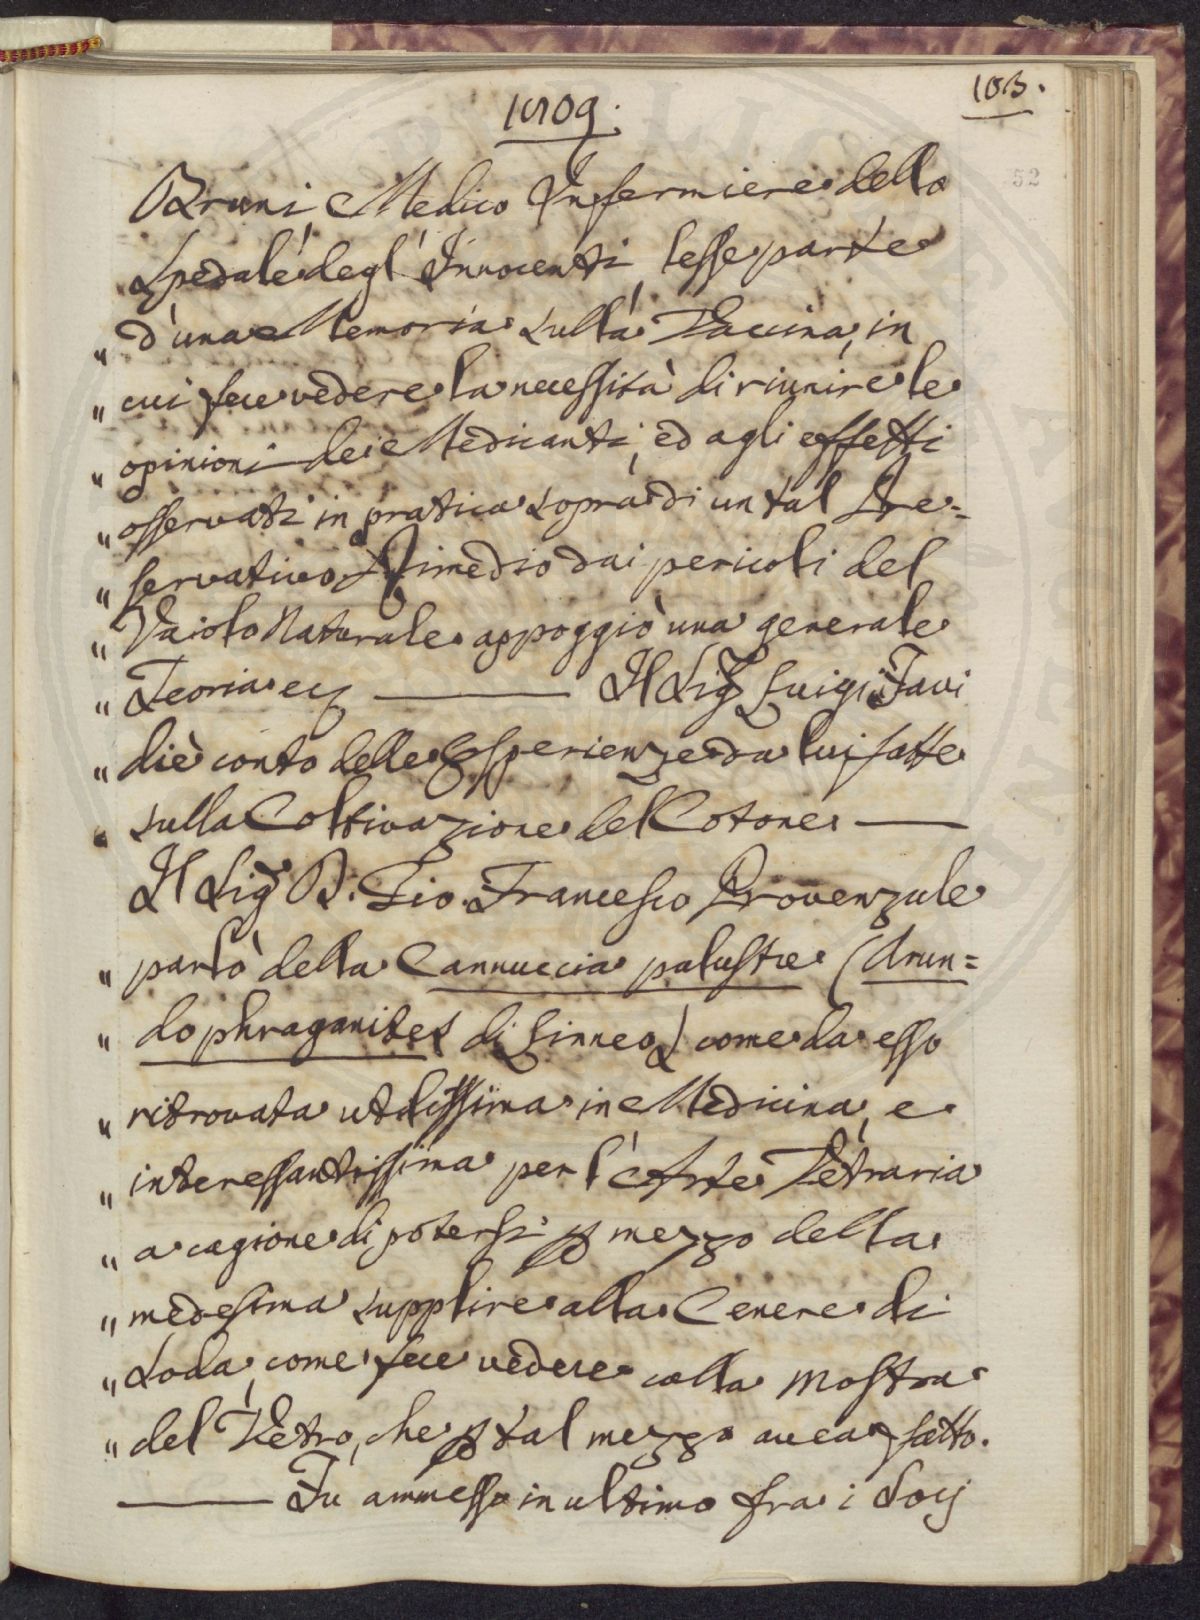 103.
1809.
52
Bruni, Medico Infermiere dello
Spedale degl'Innocenti, lesse parte
„ d'una Memoria sulla Vaccina, in
„ cui fece vedere la necessità di riunire le
„ opinioni dei Medicanti, ed agli effetti
„ osservati in pratica sopra di un tal Pre=
„ servativo, Rimedio dai pericoli del
„ Vaiolo Naturale appoggiò una generale
„ Teoria ec. ——— Il Sig.r Luigi Tavi
„ diè conto delle Esperienze da lui fatte
„ sulla Coltivazione del Cotone ———
Il Sig.r D. Gio. Francesco Provenzale
„ parlò della Cannuccia palustre (Arun=
„ do phraganites di Linneo) come da esso
„ ritrovata utilissima in Medicina, e
„ interessantissima per l'Arte Vetraria
„ a cagione di potersi p mezzo della
„ medesima supplire alla Cenere di
„ Soda, come fece vedere colla mostra
„ del Vetro, che p tal mezzo avea fatto.
——— Fu ammesso in ultimo fra i Socj